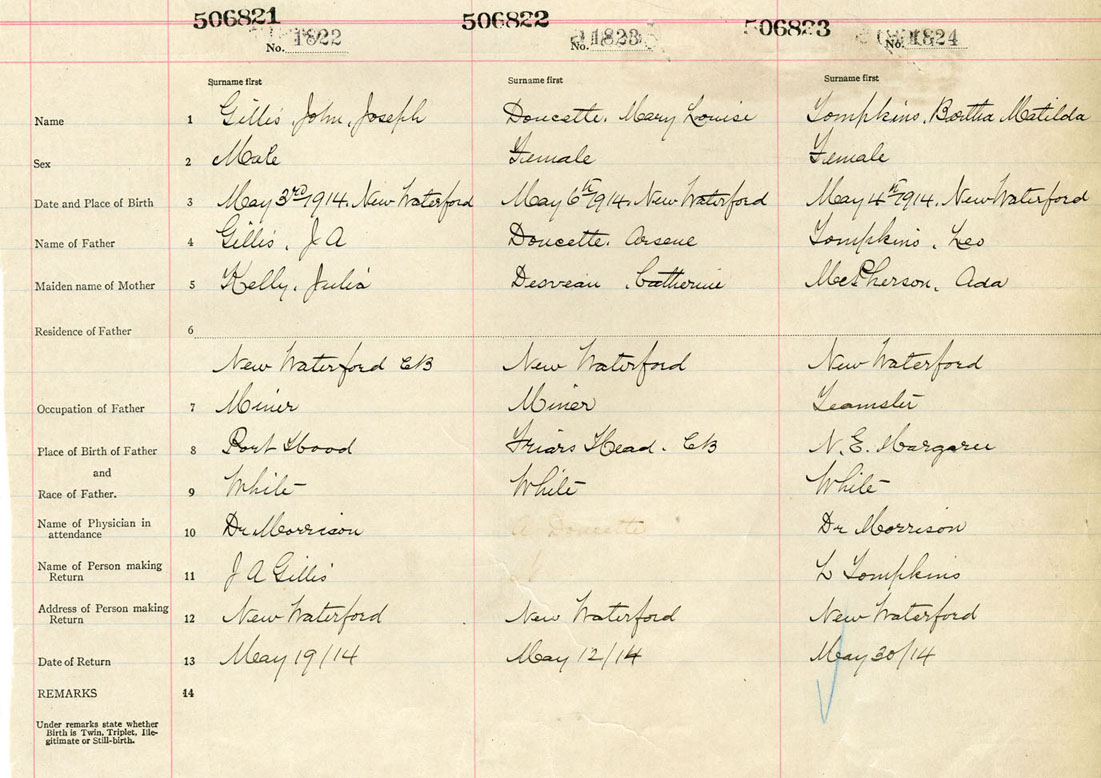 506821 506822 506823
No. 1822 No. 1823 No. 1824
Surname first Surname first Surname first
Name 1 Gillis, John, Joseph Doucette, Mary Louise Tompkins, Bertha Matilda
Sex 2 Male Female Female
Date and Place of Birth 3 May 3rd 1914, New Waterford May 6th 1914, New Waterford May 4th 1914, New Waterford
Name of Father 4 Gillis, J A Doucette, Arsene Tompkins, Leo
Maiden name of Mother 5 Kelly, Julia Desveau, Catherine McPherson, Ada
Residence of Father 6
New Waterford CB New Waterford New Waterford
Occupation of Father 7 Miner Miner Teamster
Place of Birth of Father 8 Port Hood Friars Head. CB N.E. Margaree
and
Race of Father. 9 White White White
Name of Physician in
attendance 10 Dr Morrison A Doucette Dr Morrison
Name of Person making
Return 11 J A Gillis L Tompkins
Address of Person making
Return 12 New Waterford New Waterford New Waterford
Date of Return 13 May 19/14 May 12/14 May 30/14
REMARKS 14
Under remarks state whether
Birth is Twin, Triplet, Ille-
gitimate or Still-birth.